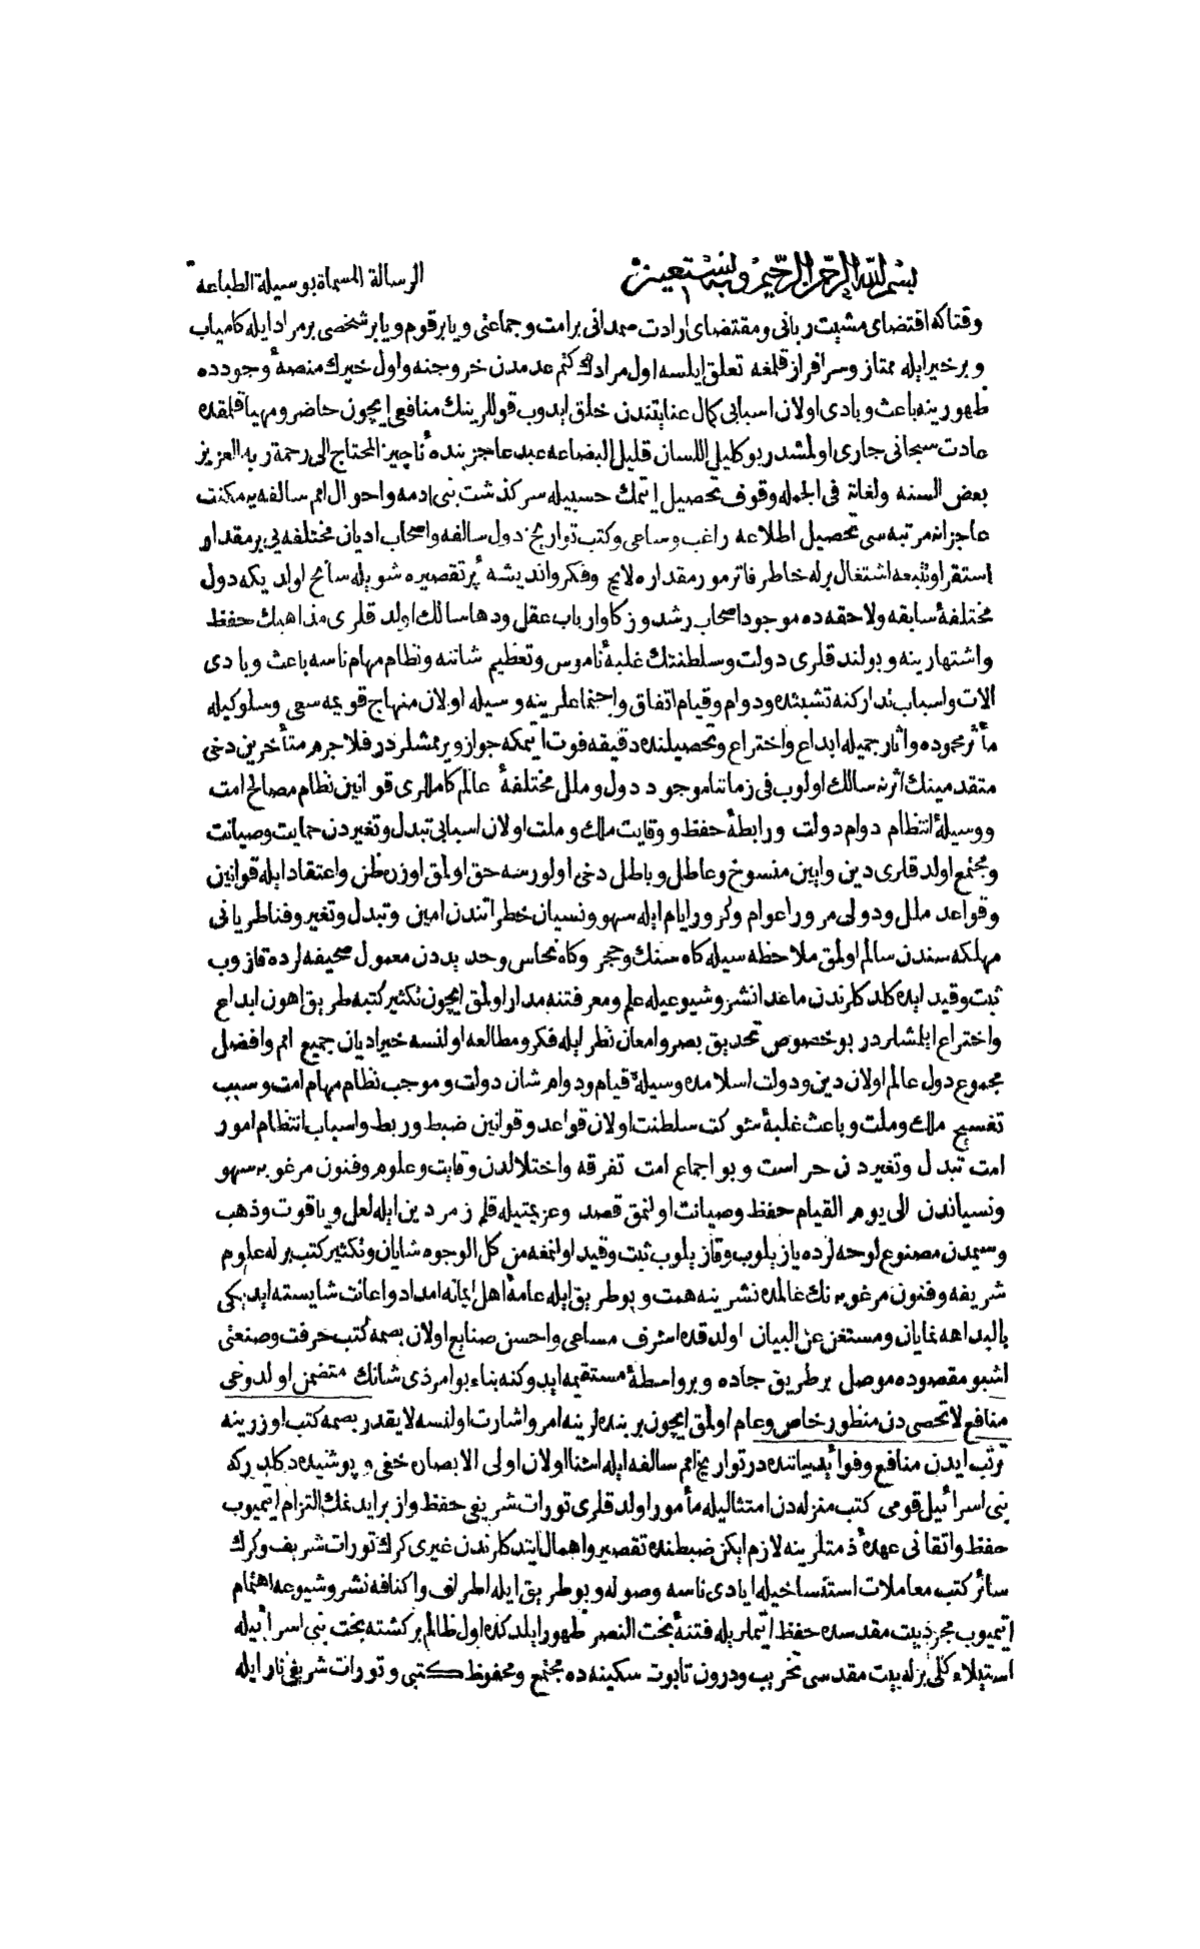 بسم الله الرحمن الرحيم وبه نستعين
الرسالة المسماة بوسيلة الطباعه
وقتاكه اقتضاى مشيت ربانى ومقتضاى ارادت صمدانى برامت وجماعتى ويا برقوم ويا بر شخصى بر مراد ايله كامياب
و بر خير ايله ممتاز وسرافراز قلمغه تعلق ايلسه اول مرادك كتم عدمدن خروجنه واول خيرك منصهٔ وجودده
ظهورينه باعث وبادى اولان اسبابى كمال عنايتندن خلق ايدوب قوللرينك منافعى ايچون حاضر ومهيا قلمقده
عادت سبحانى جارى اولمشدر بو كليل اللسان قليل البضاعه عبد عاجز بندهٔ ناچيز المحتاج الى رحمة ربه العزيز
بعض السنه ولغاته فى الجمله وقوف تحصيل ايتمك حسبيله سركذشت بنى ادمه واحوال امم سالفه يه مكنت
عاجزانه مرتبه سى تحصيل اطلاعه راغب وساعى وكتب تواريخ دول سالفه واصحاب اديان مختلفه يى بر مقدار
استقرا وتتبعه اشتغال برله خاطر فاترمور مقداره لايح وفكر وانديشه پر تقصيره شويله سانح اولديكه دول
مختلفهٔ سابقه ولاحقه ده موجود اصحاب رشد وزكا وارباب عقل ودها سالك اولدقلرى مذاهبك حفظ
واشتهارينه وبولندقلرى دولت وسلطنتك غلبهٔ ناموس وتعظيم شاننه ونظام مهام ناسه باعث وبادى
الات واسباب تداركنه تشبثده ودوام وقيام اتفاق واجتماعلرينه وسيله اولان منهاج قويمه سعى وسلوكيله
مأثر محموده واثار جميله ابداع واختراع وتحصيلنده دقيقه فوت ايتمكه جواز ويرممشلردر فلاجرم متأخرين دخى
متقدمينك اثرنه سالك اولوب فى زماننا موجود دول وملل مختلفهٔ عالم كاملرى قوانين نظام مصالح امت
ووسيلهٔ انتظام دوام دولت ورابطهٔ حفظ ووقايت ملك وملت اولان اسبابى تبدل وتغيردن حمايت وصيانت
ومجتمع اولدقلرى دين وايين منسوخ وعاطل وباطل دخى اولورسه حق اولمق اوزره ظن واعتقاد ايله قوانين
وقواعد ملل ودولى مرور اعوام وكرور ايام ايله سهو ونسيان خطراتندن امين وتبدل وتغير وفناطريانى
مهلكه سندن سالم اولمق ملاحظه سيله كاه سنك وحجر وكاه نحاس وحديددن معمول صحيفه لرده قازوب
ثبت وقيد ايده كلدكلرندن ماعدا نشر وشيوعيله علم ومعرفتنه مدار اولمق ايچون تكثير كتبه طريق اهون ابداع
واختراع ايلمشلردر بوخصوص تحديق بصر وامعان نظر ايله فكر ومطالعه اولنسه خير اديان جميع امم وافضل
مجموع دول عالم اولان دين ودولت اسلامده وسيلهٔ قيام ودوام شان دولت وموجب نظام مهام امت وسبب
تفسيح ملك وملت وباعث غلبهٔ شوكت سلطنت اولان قواعد وقوانين ضبط وربط واسباب انتظام امور
امت تبدل وتغيردن حراست وبو اجماع امت تفرقه واختلالدن وقايت وعلوم وفنون مرغوبه سهو
ونسياندن الى يوم القيام حفظ وصيانت اولنمق قصد وعزيمتيله قلم زمردين ايله لعل وياقوت وذهب
وسيمدن مصنوع لوحه لرده يازيلوب وقازيلوب ثبت وقيد اولنمغه من كل الوجوه شايان وتكثير كتب برله علوم
شريفه وفنون مرغوبه نك عالمده نشرينه همت وبو طريق ايله عامهٔ اهل ايمانه امداد واعانت شايسته ايديكى
بالبداهه نمايان ومستغن عن البيان اولدقده اشرف مساعى واحسن صنايع اولان بصمه كتب حرفت وصنعتى
اشبو مقصوده موصل بر طريق جاده وبر واسطهٔ مستقيمه ايدوكنه بناء بو امر ذى شانك متضمن اولدوغى
منافع لاتحصى دن منظور خاص وعام اولمق ايچون بر بنده لرينه امر واشارت اولنسه لايقدر بصمه كتب اوزرينه
ترتب ايدن منافع وفوائد بياننده در تواريخ امم سالفه ايله اشنا اولان اولى الابصاره خفى وپوشيده دكلدركه
بنى اسرائيل قومى كتب منزله دن امتثاليله مأمور اولدقلرى تورات شريفى حفظ وازبر ايدنمك التزام ايتميوب
حفظ واتقانى عهدهٔ ذمتلرينه لازم ايكن ضبطنده تقصير واهمال ايتدكلرندن غيرى كرك تورات شريف وكرك
سائر كتب معاملات استنساخيله ايادى ناسه وصوله وبو طريق ايله اطراف واكنافه نشر وشيوعه اهتمام
ايتميوب مجرد بيت مقدسده حفظ ايتملريله فتنهٔ بخت النصر ظهور ايلدكده اول ظالم بركشته بخت بنى اسرائيله
استيلاء كلى برله بيت مقدسى تخريب ودرون تابوت سكينه ده مجتمع ومحفوظ كتبى وتورات شريفى نار ايله